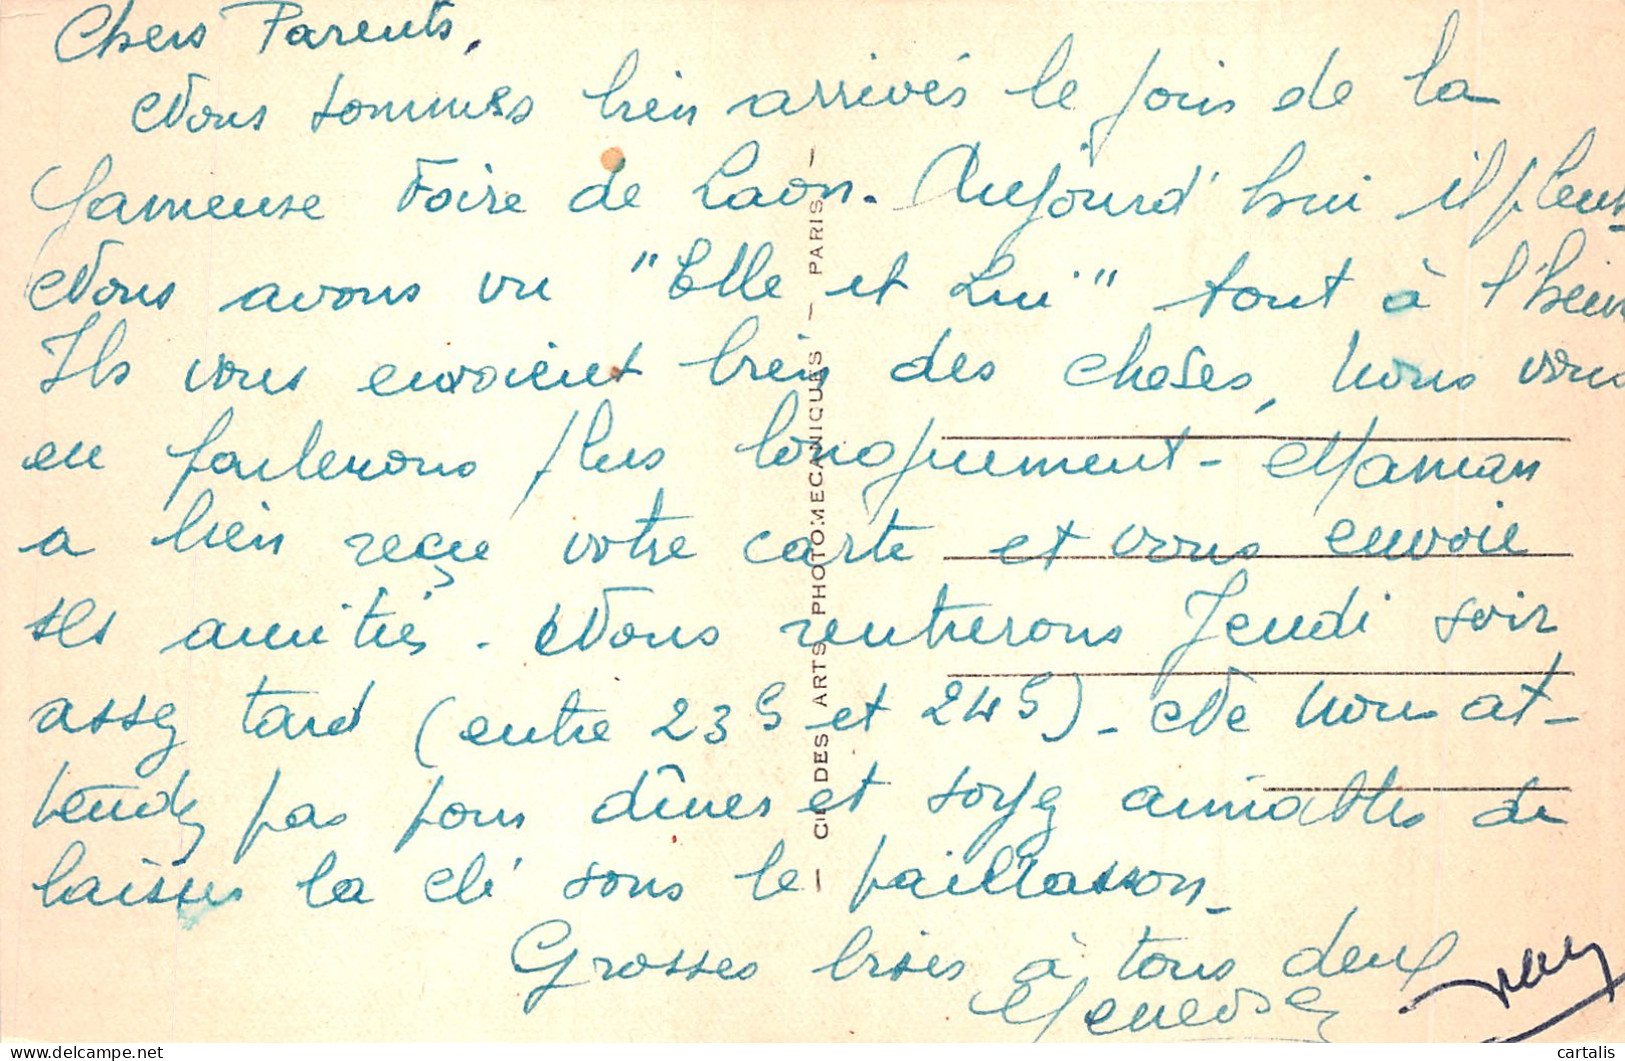 Chers Parents,
Nous sommes bien arrivés le jour de la
fameuse Foire de Laon. Aujourd'hui il pleut
Nous avons vu "Elle et Lui" tout à l'heure
Ils vous envoient bien des choses, nous vous
en parlerons plus longuement - Maman
a bien reçu votre carte et vous envoie
ses amitiés. Nous rentrerons Jeudi soir
assez tard (entre 23h et 24h) - Ne nous at-
tendez pas pour dîner et soyez aimables de
laisser la clé sous le paillasson -
Grosses bises à tous deux
CIE DES ARTS PHOTOMECANIQUES - PARIS -
cartalis